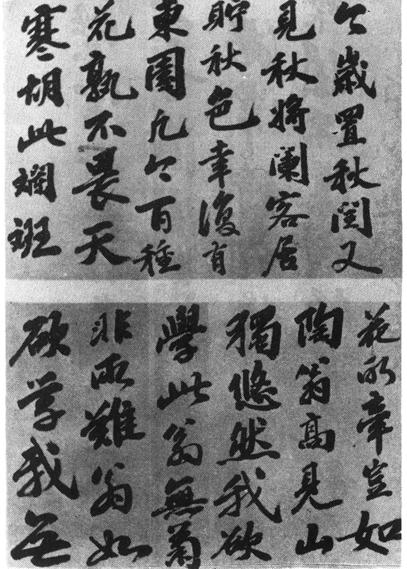 今歲置秋閏又
見秋將闌客居
貯秋色幸復有
東園凡今百種
花孰不畏天
寒胡此斕班
花所牽豈如
陶翁高見山
獨悠然我欲
學此翁無菊
非所難翁如
欲学我無